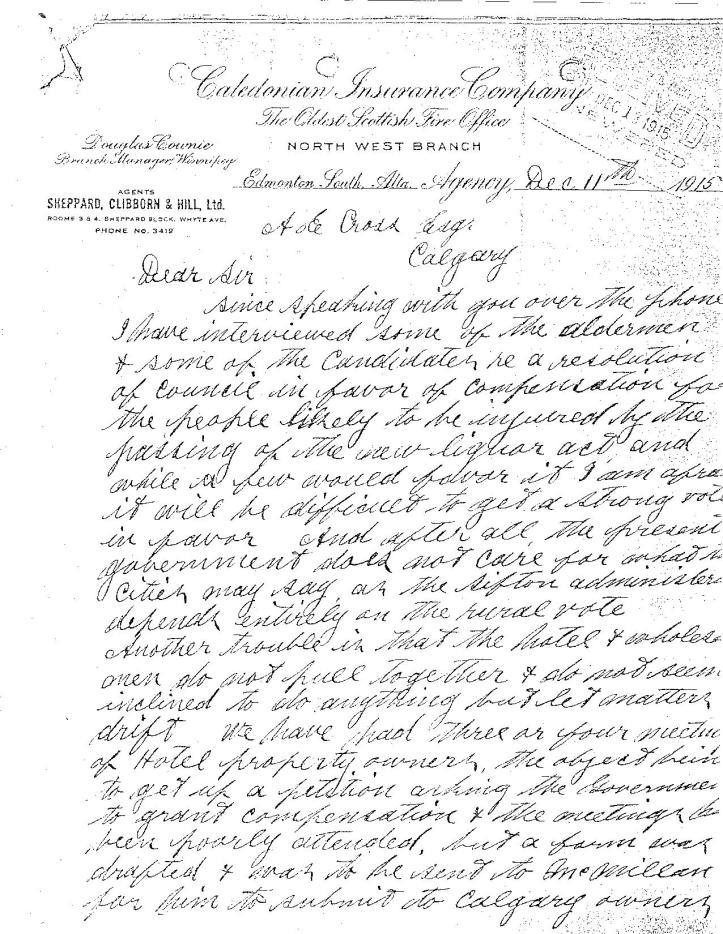 Caledonian Insurance Company
The Oldest Scottish Fire Office
NORTH WEST BRANCH
Douglas Cownie
Branch Manager, Winnipeg
DEC 13 1915
AGENTS
SHEPPARD, CLIBBORN & HILL, Ltd.
ROOMS 3 & 4, SHEPPARD BLOCK, WHYTE AVE,
PHONE NO. 3419
Edmonton South, Alta. Agency, Dec 11th 1915
A E Cross Esq.
Calgary
Dear Sir
Since speaking with you over the phone
I have interviewed some of the aldermen
& some of the Candidates re a resolution
of Council in favor of compensation fo
the people likely to be injured by the
passing of the new liquor act, and
while a few would favor it I am afra
it will be difficult to get a strong vote
in favor And after all, the present
government does not care for what
Cities may say, as the Sifton administra
depends entirely on the rural vote
Another trouble is that the hotel & wholes
men do not pull together & do not seem
inclined to do anything but let matters
drift We have had three or four meetin
of Hotel property owners, the object bein
to get up a petition asking the Governmen
to grant compensation & the meetings
been poorly attended, but a form was
drafted & was to be sent to McMillan
for him to submit to Calgary owners